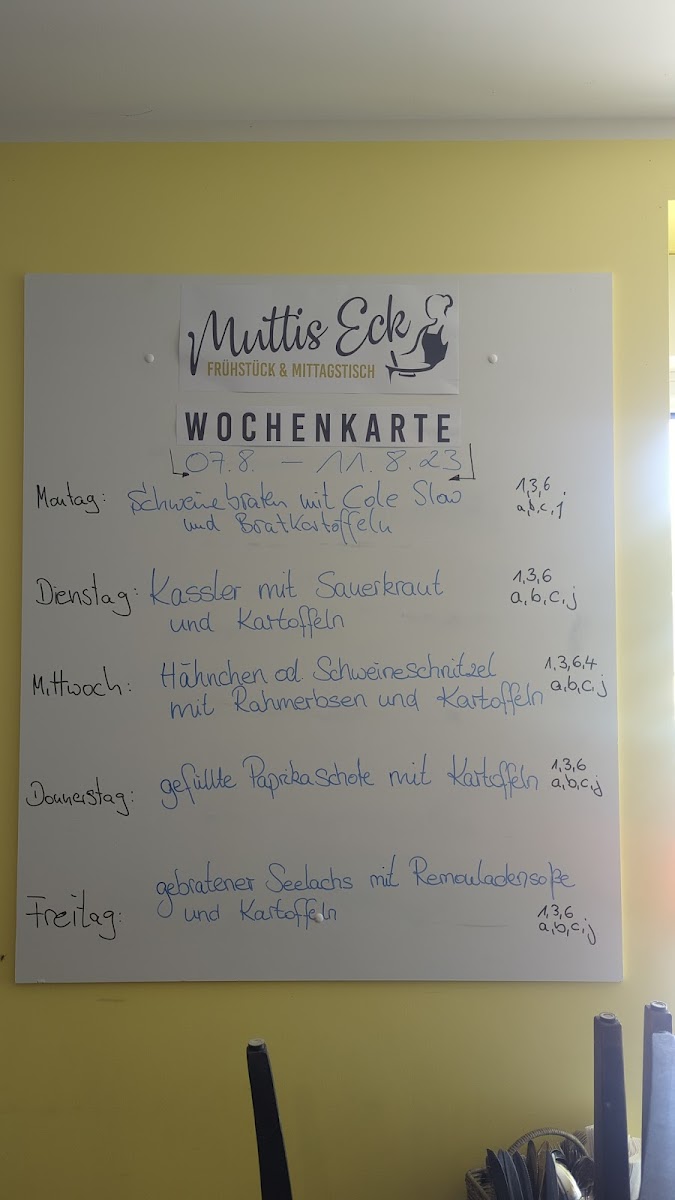 Muttis Eck
FRÜHSTÜCK & MITTAGSTISCH
WOCHENKARTE
07.8. - 11.8.23
Montag: Schweinebraten mit Cole Slaw 1,3,6
und Bratkartoffeln a,b,c,j
Dienstag: Kassler mit Sauerkraut 1,3,6
und Kartoffeln a,b,c,j
Mittwoch: Hähnchen od. Schweineschnitzel 1,3,6,4
mit Rahmerbsen und Kartoffeln a,b,c,j
Donnerstag: gefüllte Paprikaschote mit Kartoffeln 1,3,6
a,b,c,j
Freitag: gebratener Seelachs mit Remouladensoße
und Kartoffeln 1,3,6
a,b,c,j